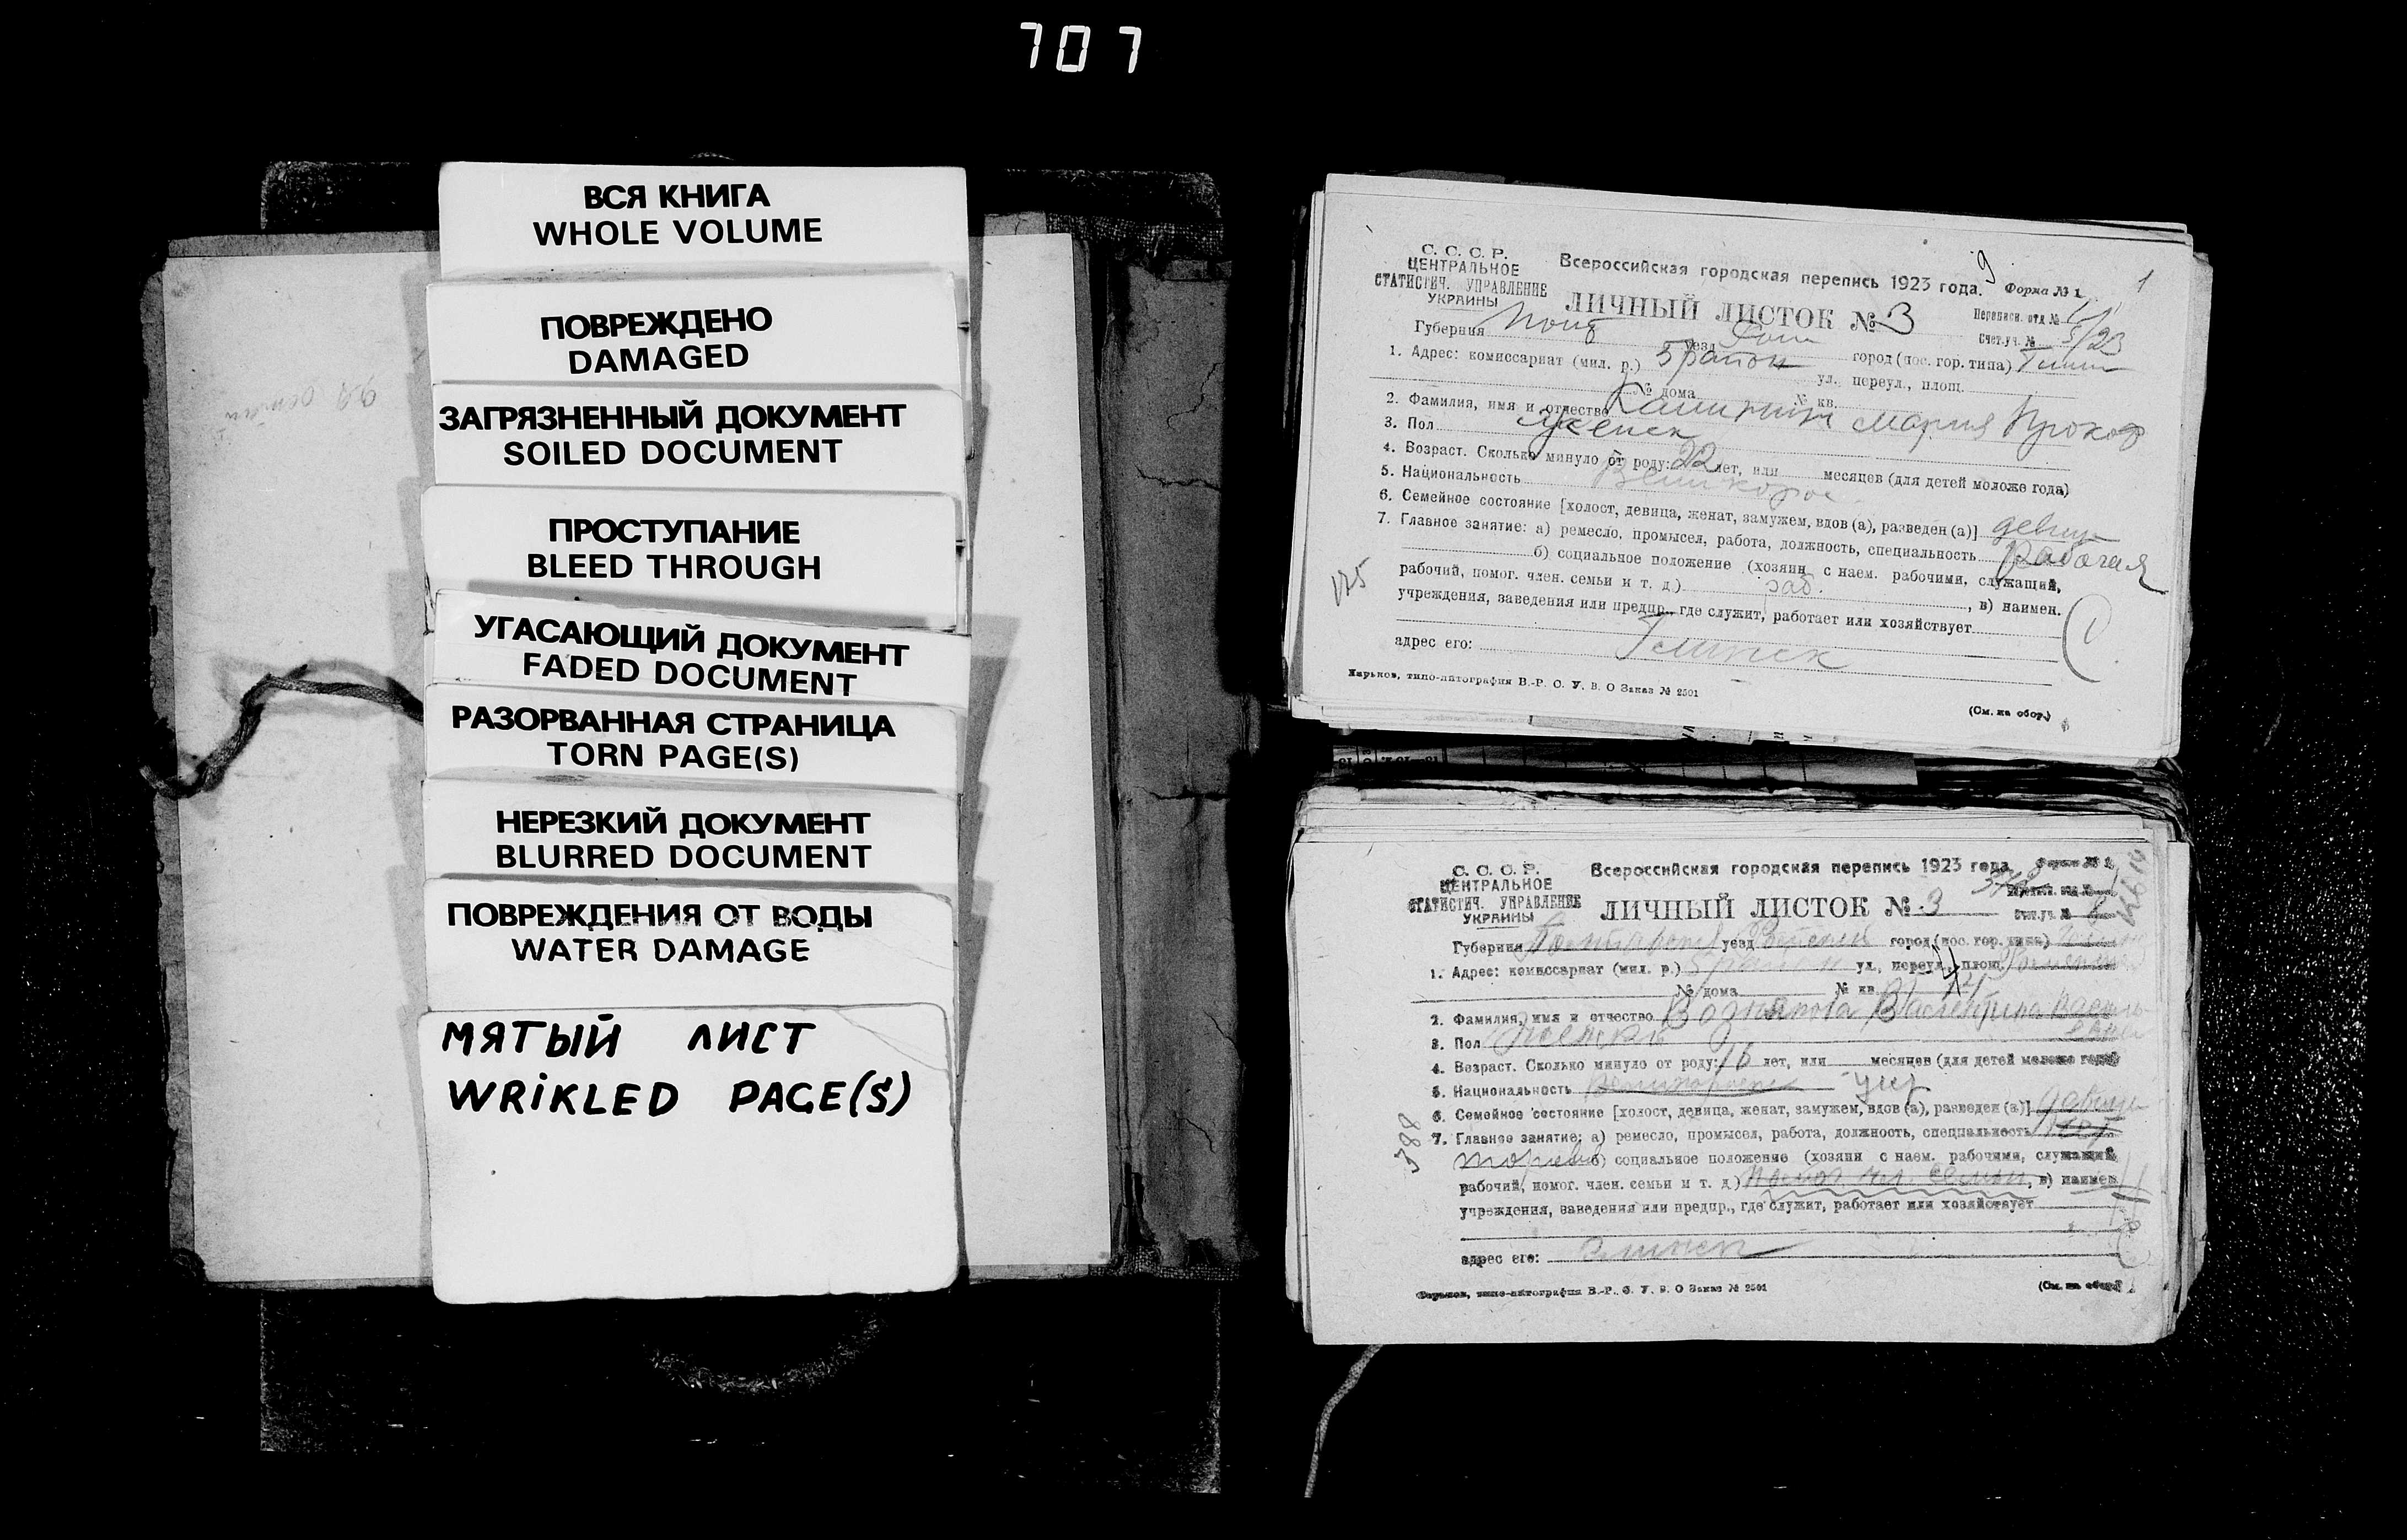 707
ВСЯ КНИГА
WHOLE VOLUME
ПОВРЕЖДЕНО
DAMAGED
ЗАГРЯЗНЕННЫЙ ДОКУМЕНТ
SOILED DOCUMENT
ПРОСТУПАНИЕ
BLEED THROUGH
УГАСАЮЩИЙ ДОКУМЕНТ
FADED DOCUMENT
РАЗОРВАННАЯ СТРАНИЦА
TORN PAGE(S)
НЕРЕЗКИЙ ДОКУМЕНТ
BLURRED DOCUMENT
ПОВРЕЖДЕНИЯ ОТ ВОДЫ
WATER DAMAGE
МЯТЫЙ ЛИСТ
WRIKLED PAGE(S)
1
С. С. С. Р.
ЦЕНТРАЛЬНОЕ
СТАТИСТИЧ. УПРАВЛЕНИЕ
УКРАИНЫ
Всероссийская городская перепись 1923 года. Форма № 1
ЛИЧНЫЙ ЛИСТОК № 3
Переписн. отд №
Счет.уч. № 5/23
Губерния уезд город (пос. гор. типа)
1. Адрес: комиссариат (мил. р.) 5 район ул. переул., площ.
№ дома № кв.
2. Фамилия, имя и отчество Мария Прокоф
3. Пол женск
4. Возраст. Сколько минуло от роду: 22 лет, или месяцев (для детей моложе года)
5. Национальность Великорос
6. Семейное состояние [холост, девица, женат, замужем, вдов (а), разведен (а)] девица
7. Главное занятие: а) ремесло, промысел, работа, должность, специальность Рабочая
б) социальное положение (хозяин с наем. рабочими, служащий,
рабочий, помог. член. семьи и т. д.) раб. , в) наимен.
учреждения, заведения или предпр., где служит, работает или хозяйствует
адрес его:
Харьков, типо-литография В.-Р. О. У. В. О Заказ № 2501
(См. на обор.)
С. С. С. Р.
ЦЕНТРАЛЬНОЕ
СТАТИСТИЧ. УПРАВЛЕНИЕ
УКРАИНЫ
Всероссийская городская перепись 1923 года Форма № 1
ЛИЧНЫЙ ЛИСТОК № 3
Счет.уч. №
Губерния уезд город (пос. гор. типа)
1. Адрес: комиссариат (мил. р.) 5 район ул., переул., площ.
№ дома № кв
2. Фамилия, имя и отчество Валентина Василь
евна
3. Пол Женский
4. Возраст. Сколько минуло от роду: 16 лет, или месяцев (для детей моложе года)
5. Национальность укр
6. Семейное состояние [холост, девица, женат, замужем, вдов (а), разведен (а)] девица
388
7. Главное занятие: а) ремесло, промысел, работа, должность, специальность
б) социальное положение (хозяин с наем. рабочими, служащий,
рабочий, помог. член. семьи и т. д.) Помог. чл. семьи, в) наимен
учреждения, заведения или предпр., где служит, работает или хозяйствует
адрес его:
Харьков, типо-литография В.-Р. О. У. В. О Заказ № 2501
(См. на обор.)